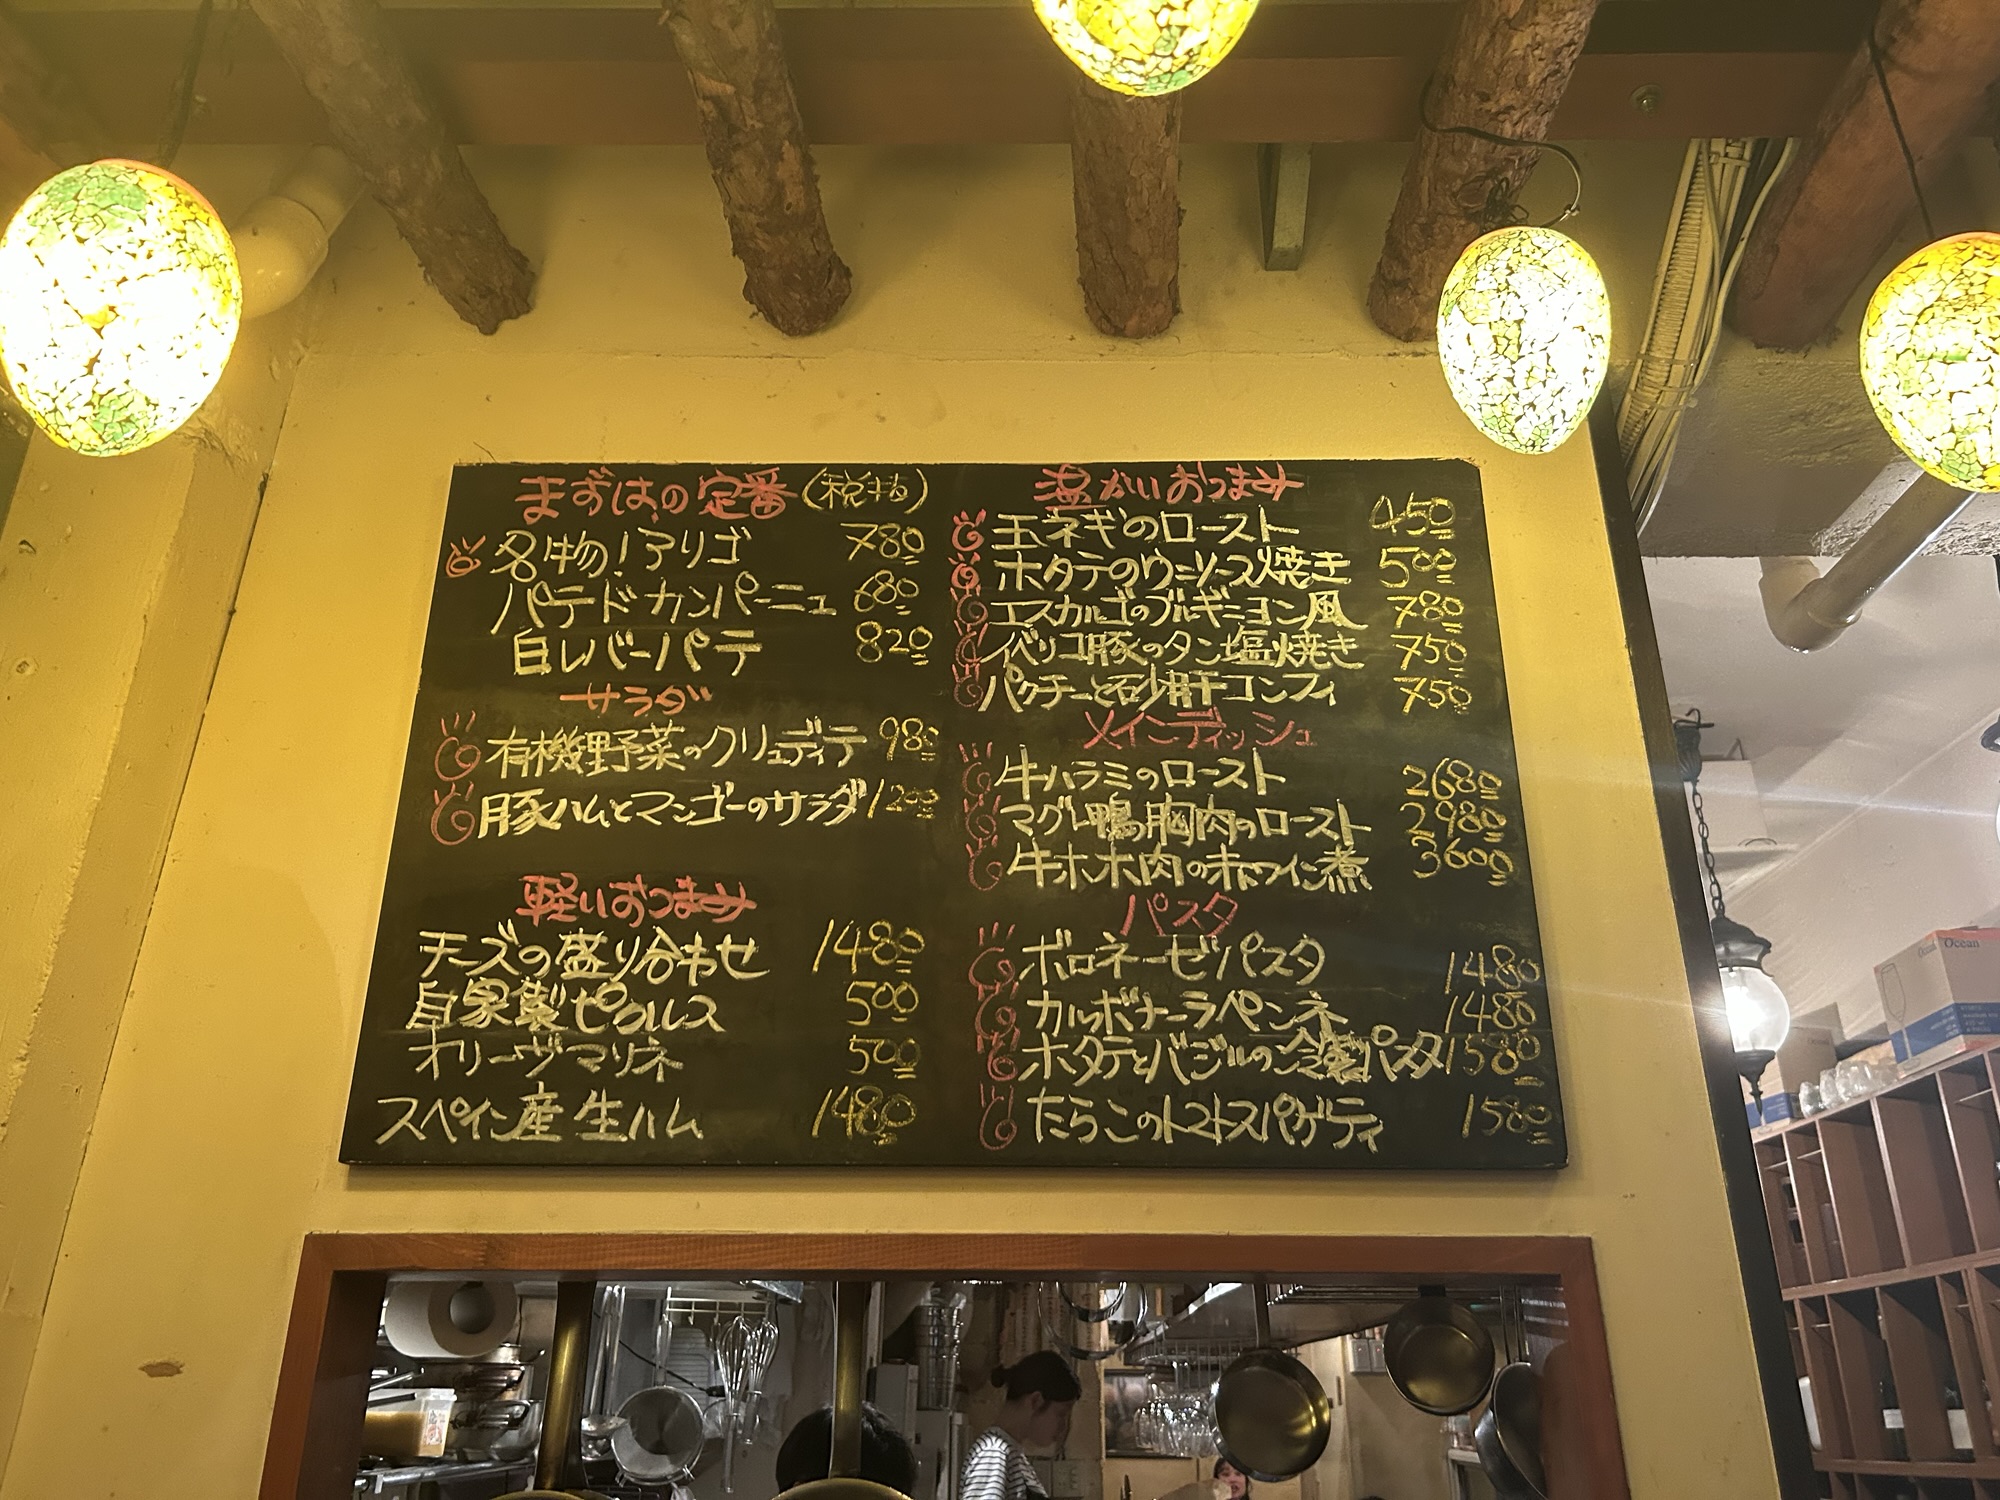 まずは、の定番(税抜)
名物!アリゴ 780
パテドカンパーニュ 680
白レバーパテ 820
サラダ
有機野菜のクリュディテ 980
豚ハムとマンゴーのサラダ 1200
軽いおつまみ
チーズの盛り合わせ 1480
自家製ピクルス 500
オリーヴマリネ 500
スペイン産生ハム 1480
温かいおつまみ
玉ネギのロースト 450
ホタテのウニソース焼き 500
エスカルゴのブルギニヨン風 780
イベリコ豚のタン塩焼き 750
パクチーと砂肝コンフィ 750
メインディッシュ
牛ハラミのロースト 2680
マグレ鴨胸肉のロースト 2980
牛ホホ肉の赤ワイン煮 3600
パスタ
ボロネーゼパスタ 1480
カルボナーラペンネ 1480
ホタテとバジルの冷製パスタ 1580
たらこのトマトスパゲティ 1580
Ocean